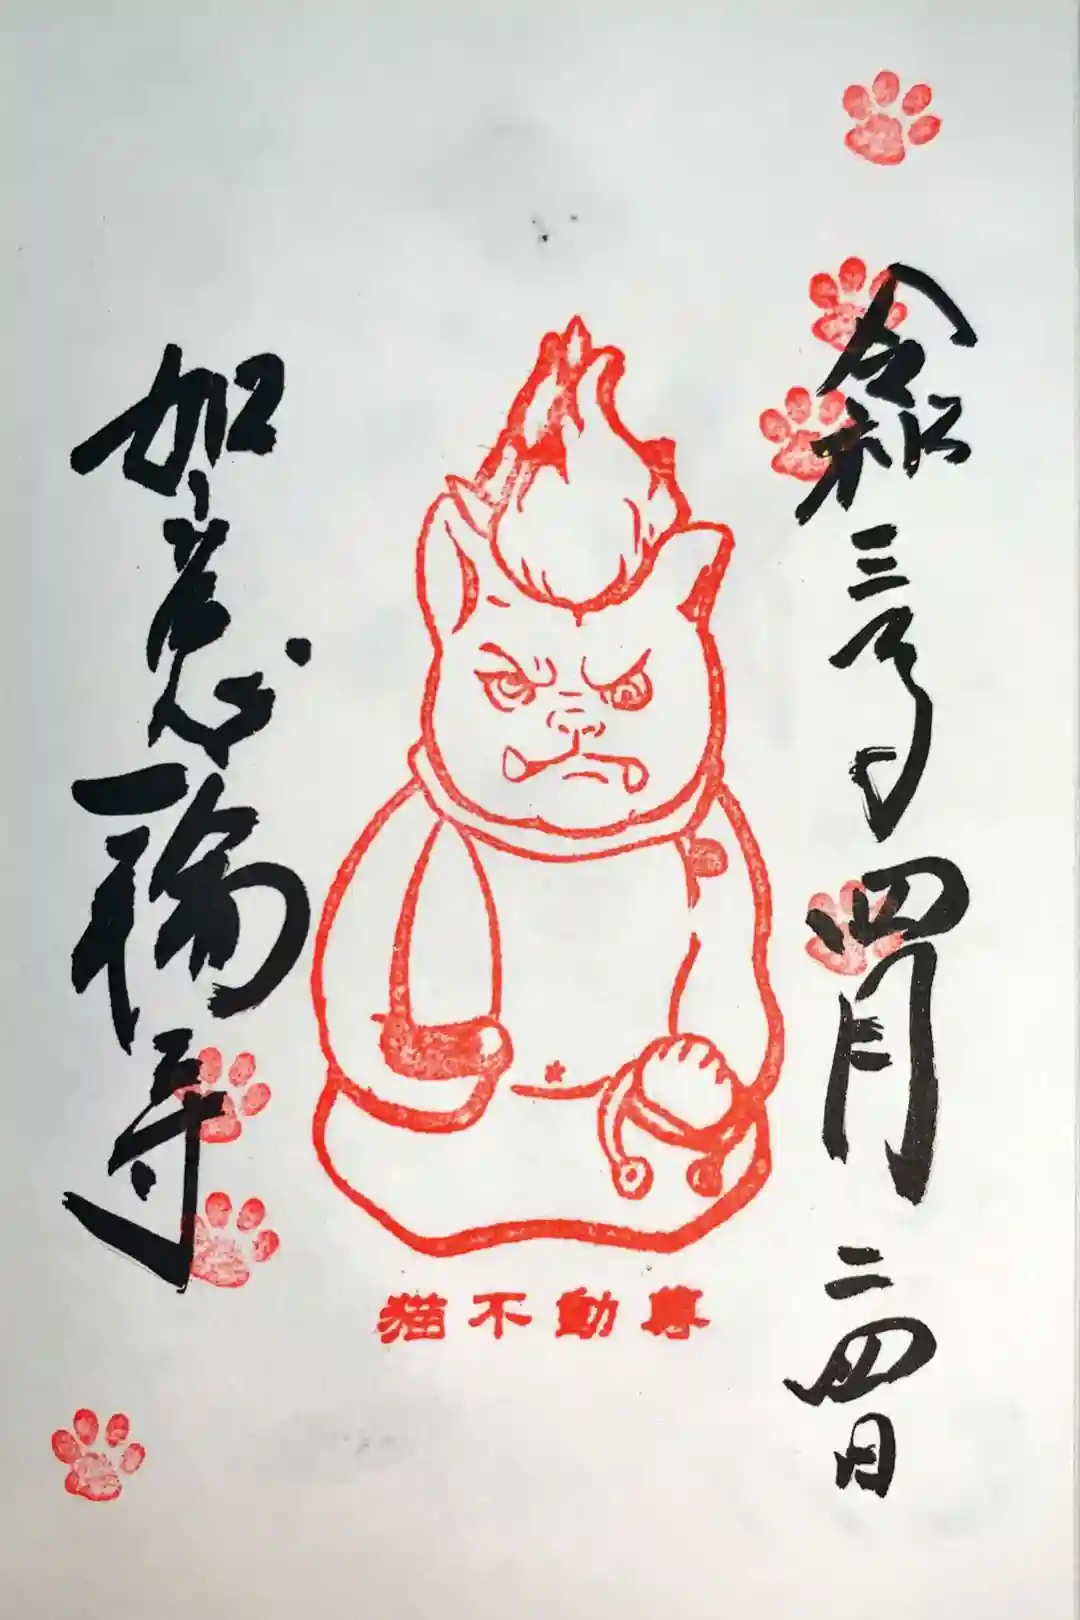 令和三年四月二四日
猫不動尊
如意輪寺